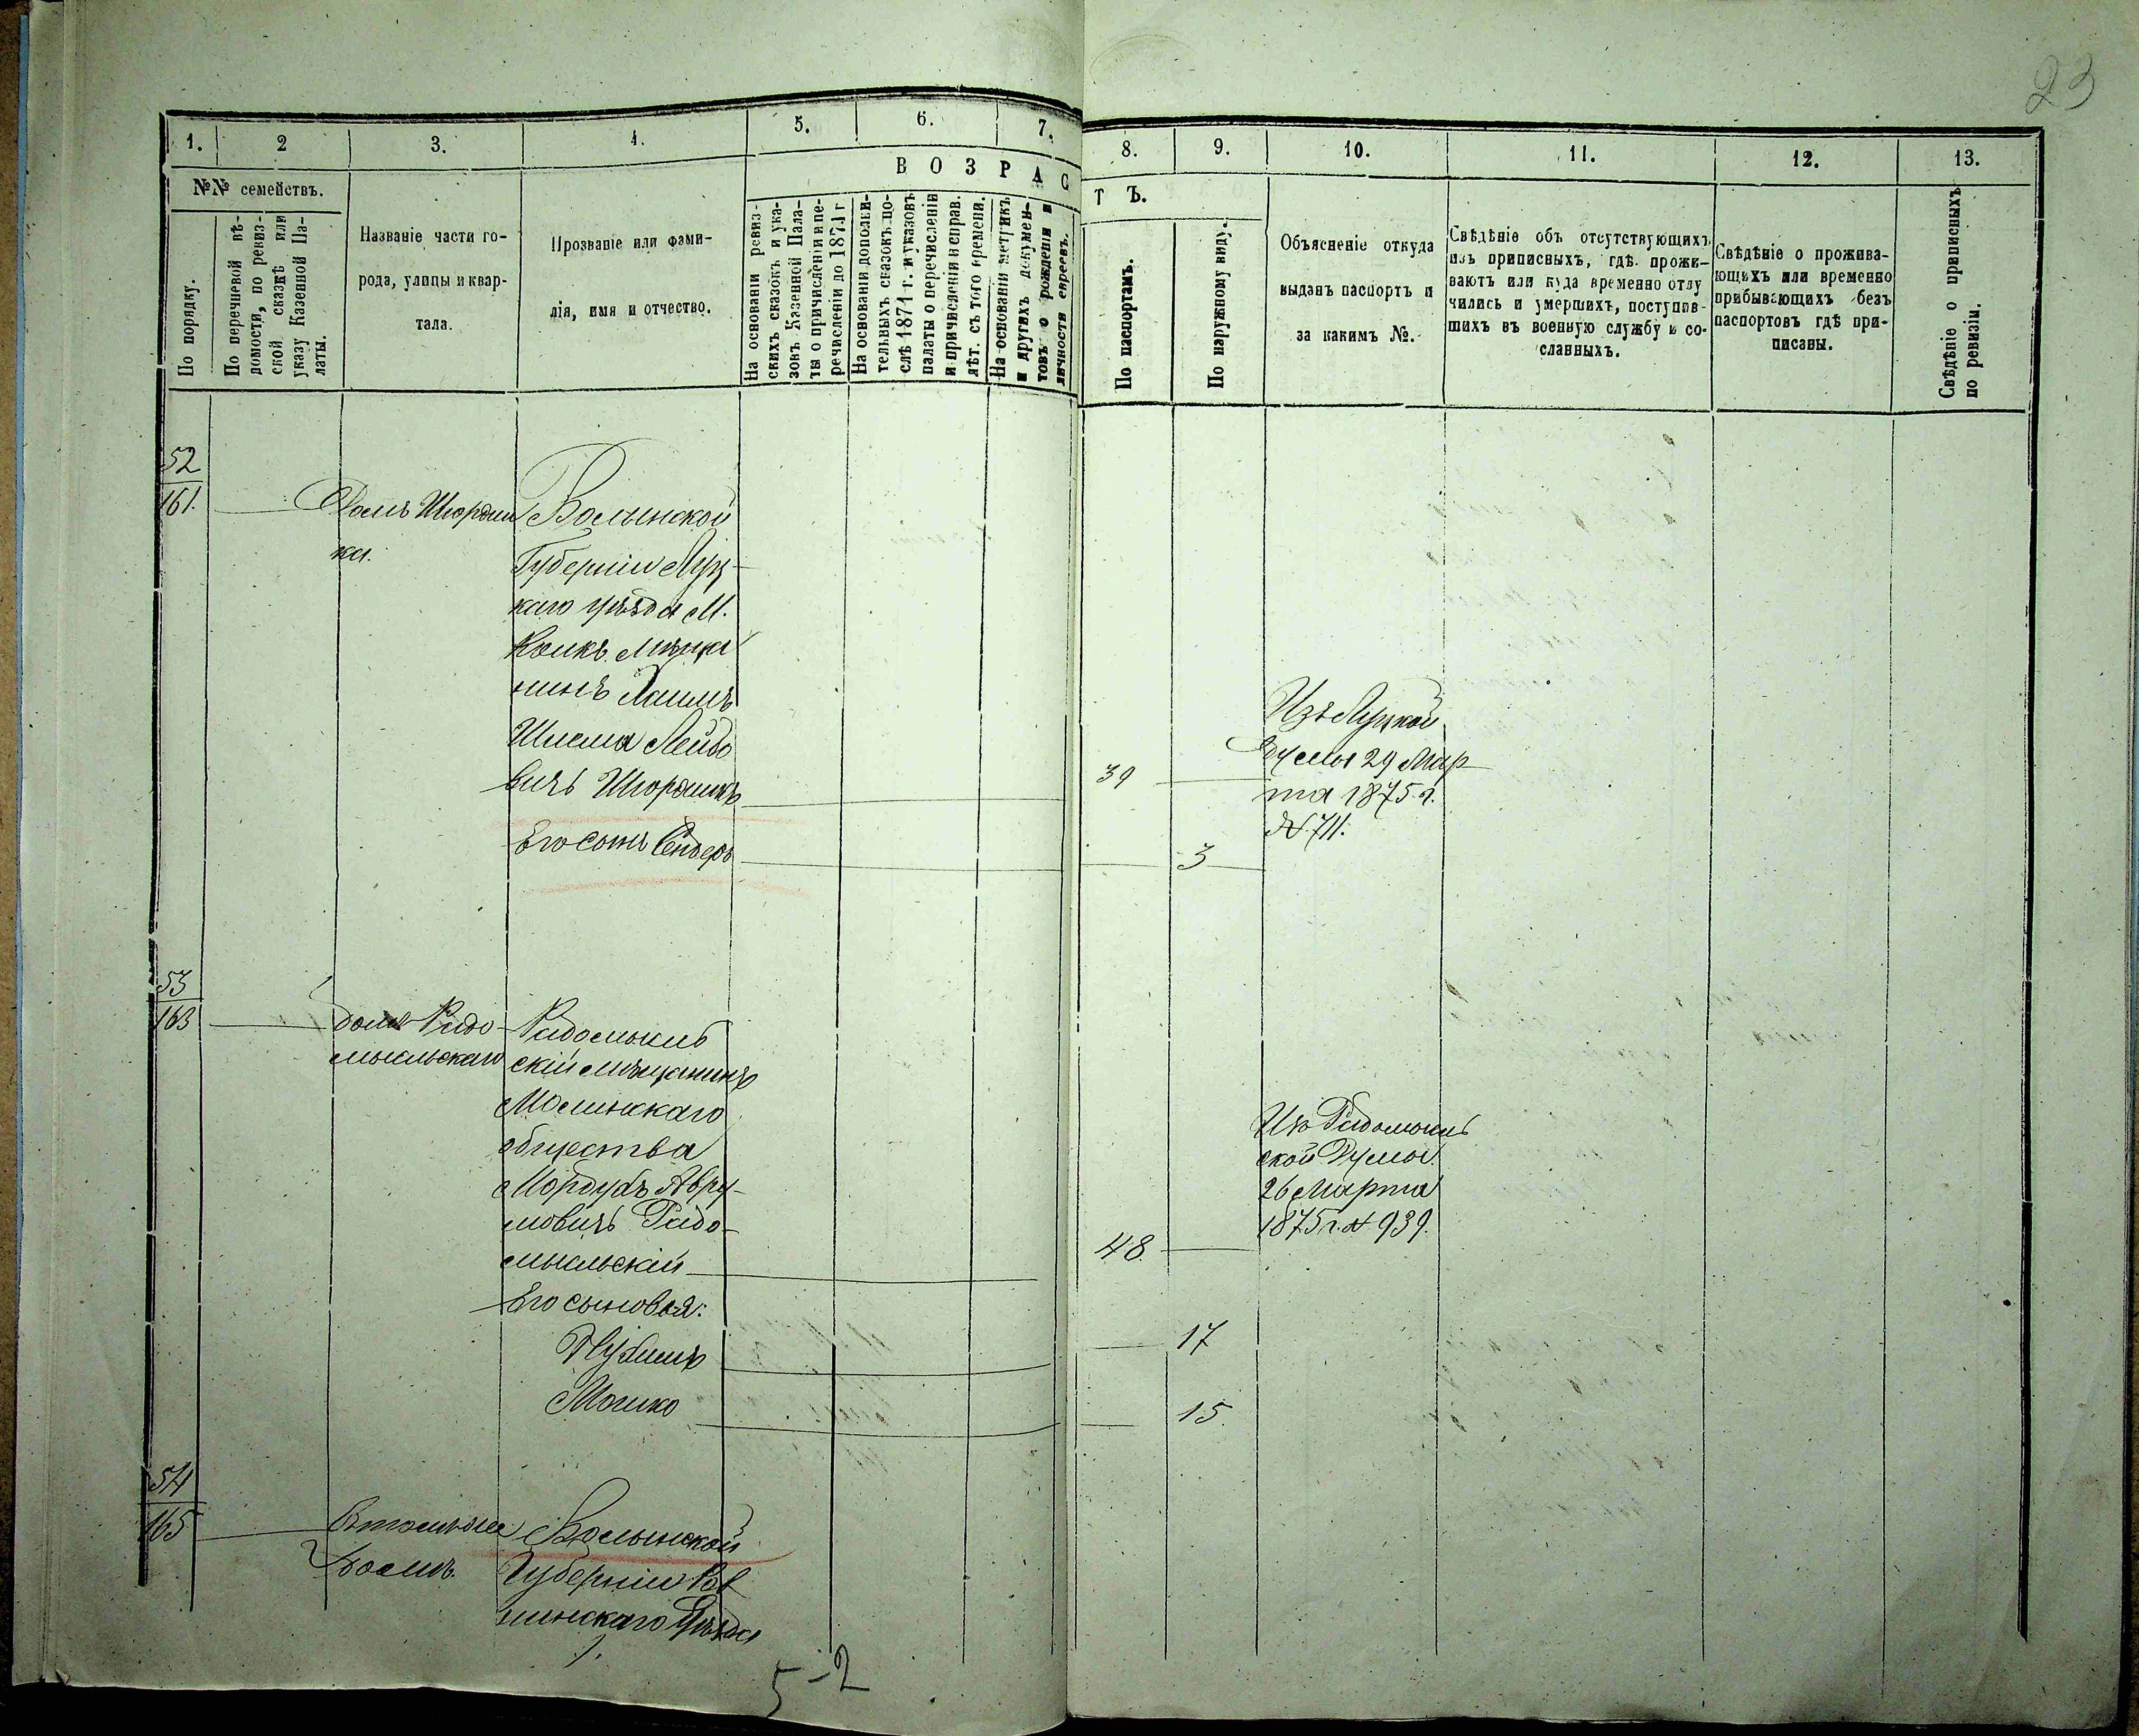 23
1.
2
3.
4.
5.
6.
7.
8.
9.
10.
11.
12.
13.
№№ семействъ.
ВОЗРАС
ТЪ.
По порядку.
По перечневой вѣ-
домости, по ревиз-
ской сказкѣ или
указу Казенной Па-
латы.
Названіе части го-
рода, улицы и квар-
тала.
Прозваніе или фами-
лія, имя и отчество.
На основаніи ревиз-
скихъ сказокъ и ука-
зовъ Казенной Пала-
ты о причисленіи и пе-
речисленіи до 1871 г
На основаніи дополни-
тельныхъ сказокъ по-
слѣ 1871 г. и указовъ
палаты о перечисленіи
и причисленіи и справ.
лѣт. съ того времени.
На основаніи метрикъ
и другихъ докумен-
товъ о рожденіи и
личности евреевъ.
По паспортамъ.
По наружному виду.
Объясненіе откуда
выданъ паспортъ и
за какимъ №.
Свѣдѣніе объ отсутствующихъ
изъ приписныхъ, гдѣ прожи-
ваютъ или куда временно отлу
чились и умершихъ, поступив-
шихъ въ военную службу и со-
сланныхъ.
Свѣдѣніе о прожива-
ющихъ или временно
прибывающихъ безъ
паспортовъ гдѣ при-
писаны.
Свѣдѣніе о приписныхъ
по ревизіи.
52
161.
Домъ Шпордин
ка.
Волынской
Губерніи Луц-
каго уѣзда М.
Колкъ мѣща
нинъ Хаимъ
Шлема Лейбо
вичъ
39
Изъ Луцкой
Думы 29 Мар
та 1875 г.
№ 711.
Его сынъ Сендеръ
3
53
163
домъ Радо-
мысльскаго
Радомысль
скій мѣщанинъ
Малинскаго
общества
Мордухъ Авру-
мовичъ Радо-
мысльскій
48.
Изъ Радомысль
ской Думы
26 Марта
1875 г. № 939.
Его сыновья:
Нухимъ
17
Мошко
15.
54
165
Въ томъ же
домѣ.
Волынской
Губерніи Ров
нинскаго Уѣзда
5-2